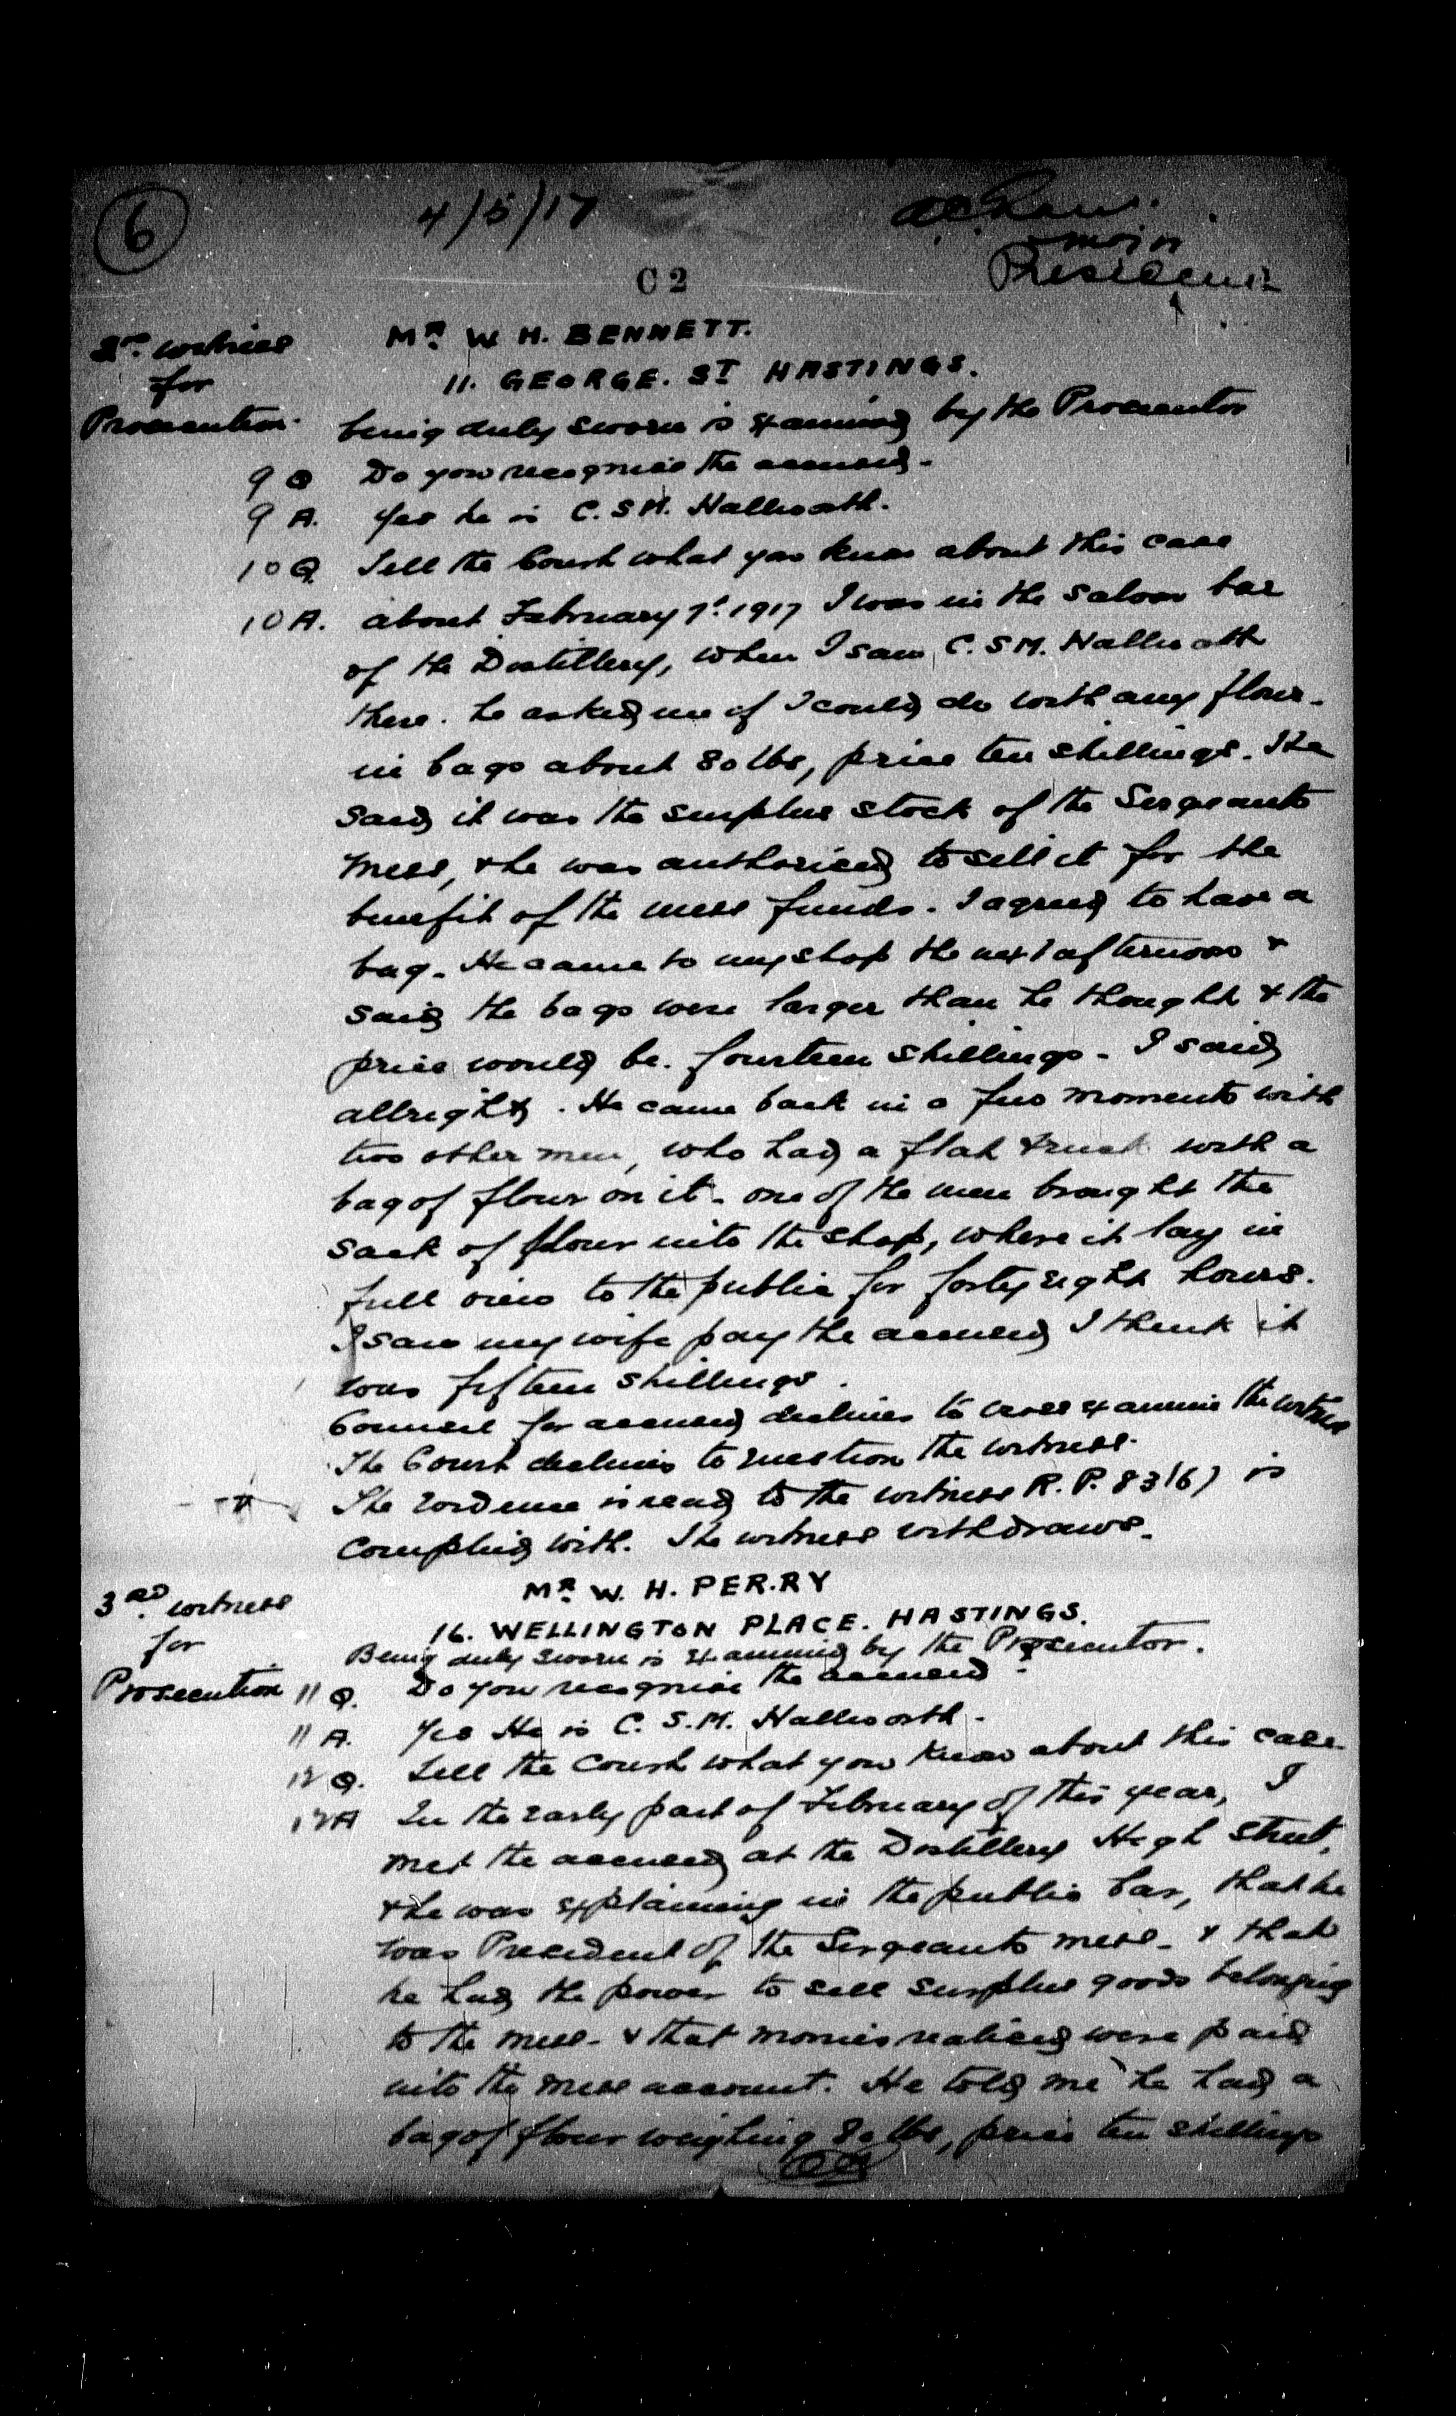 6
4/5/17
Major
President
C2
2nd witness
for
Prosecution.
MR. W. H. BENNETT.
11. GEORGE. ST HASTINGS.
being duly sworn is examined by the Prosecutor
9 Q Do you recognise the accused.
9 A. Yes he is C.S.M. Hallworth.
10 Q. Tell the Court what you know about this case
10 A. about February 7th 1917 I was in the saloon bar
of the Distillery, when I saw C.S.M. Hallworth
there. he asked me if I could do with any flour.
in bags about 80 lbs, price ten shillings. He
said it was the surplus stock of the Sergeants
mess, & he was authorised to sell it for the
benefit of the mess funds. I agreed to have a
bag. He came to my shop the next afternoon &
said the bags were larger than he thought & the
price would be. fourteen shillings. I said
allright. He came back in a few moments with
two other men, who had a flat truck with a
bag of flour on it. one of the men brought the
sack of flour into the shop, where it lay in
full view to the public for forty eight hours.
I saw my wife pay the accused I think it
was fifteen shillings.
Counsel for accused declines to cross examine the witness
The Court declines to question the witness.
The evidence is read to the witness R.P. 83(b) is
complied with. The witness withdraws.
3RD. witness
for
Prosecution
MR. W. H. PERRY
16. WELLINGTON PLACE. HASTINGS.
Being duly sworn is examined by the Prosecutor.
11 Q. Do you recognise the accused.
11 A. Yes He is C.S.M. Hallworth.
12 Q. Tell the Court what you know about this case.
12 A In the early part of February of this year, I
met the accused at the Distillery High Street,
& he was explaining in the public bar, that he
was President of the Sergeants mess. & that
he had the power to sell surplus goods belonging
to the mess. & that monies realised were paid
into the mess account. He told me he had a
bag of flour weighing 80 lbs, price ten shillings